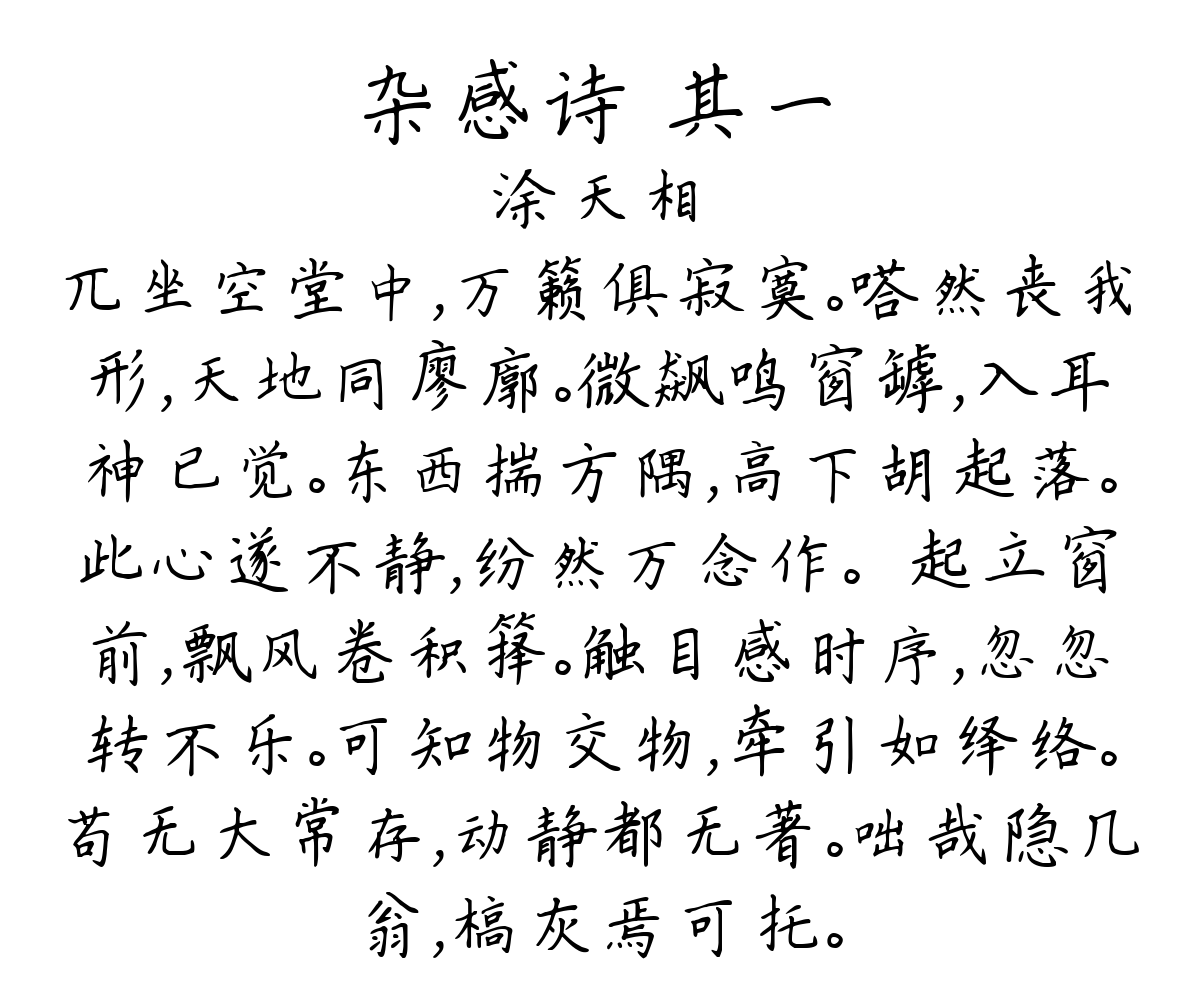 杂感诗 其一
涂天相
兀坐空堂中,万籁俱寂寞。嗒然丧我
形,天地同廖廓。微飙鸣窗罅,入耳
神已觉。东西揣方隅,高下胡起落。
此心遂不静,纷然万念作。起立窗
前,飘风卷积箨。触目感时序,忽忽
转不乐。可知物交物,牵引如绎络。
苟无大常存,动静都无著。咄哉隐几
翁,槁灰焉可托。